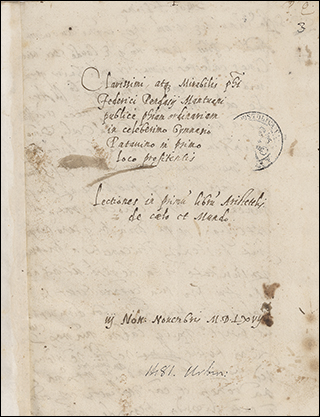 3
Clarissimi atq Mirabilis
Federici Pendasij Mantuani
publice ordinariam
in celeberimo Gymnasio
Patavino in primo
loco profitentis
Lectiones in primũ librũ Aristotelis
de cœlo et Mundo
iij Non. Novembris
1481. Urbin: